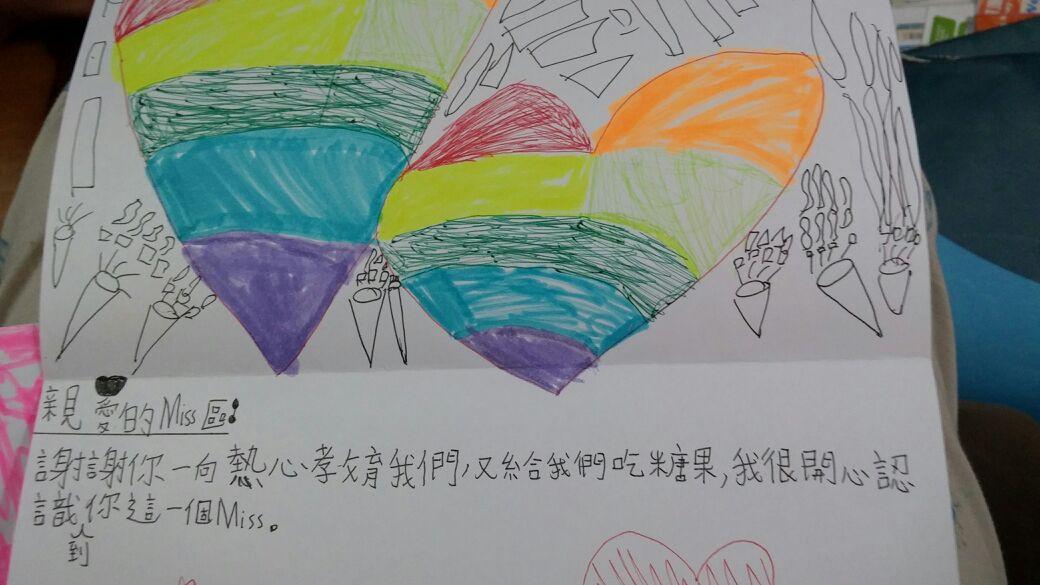 親愛的Miss區:
謝謝你一向熱心孝文育我們,又給我們吃糖果,我很開心認
識到你這一個Miss。